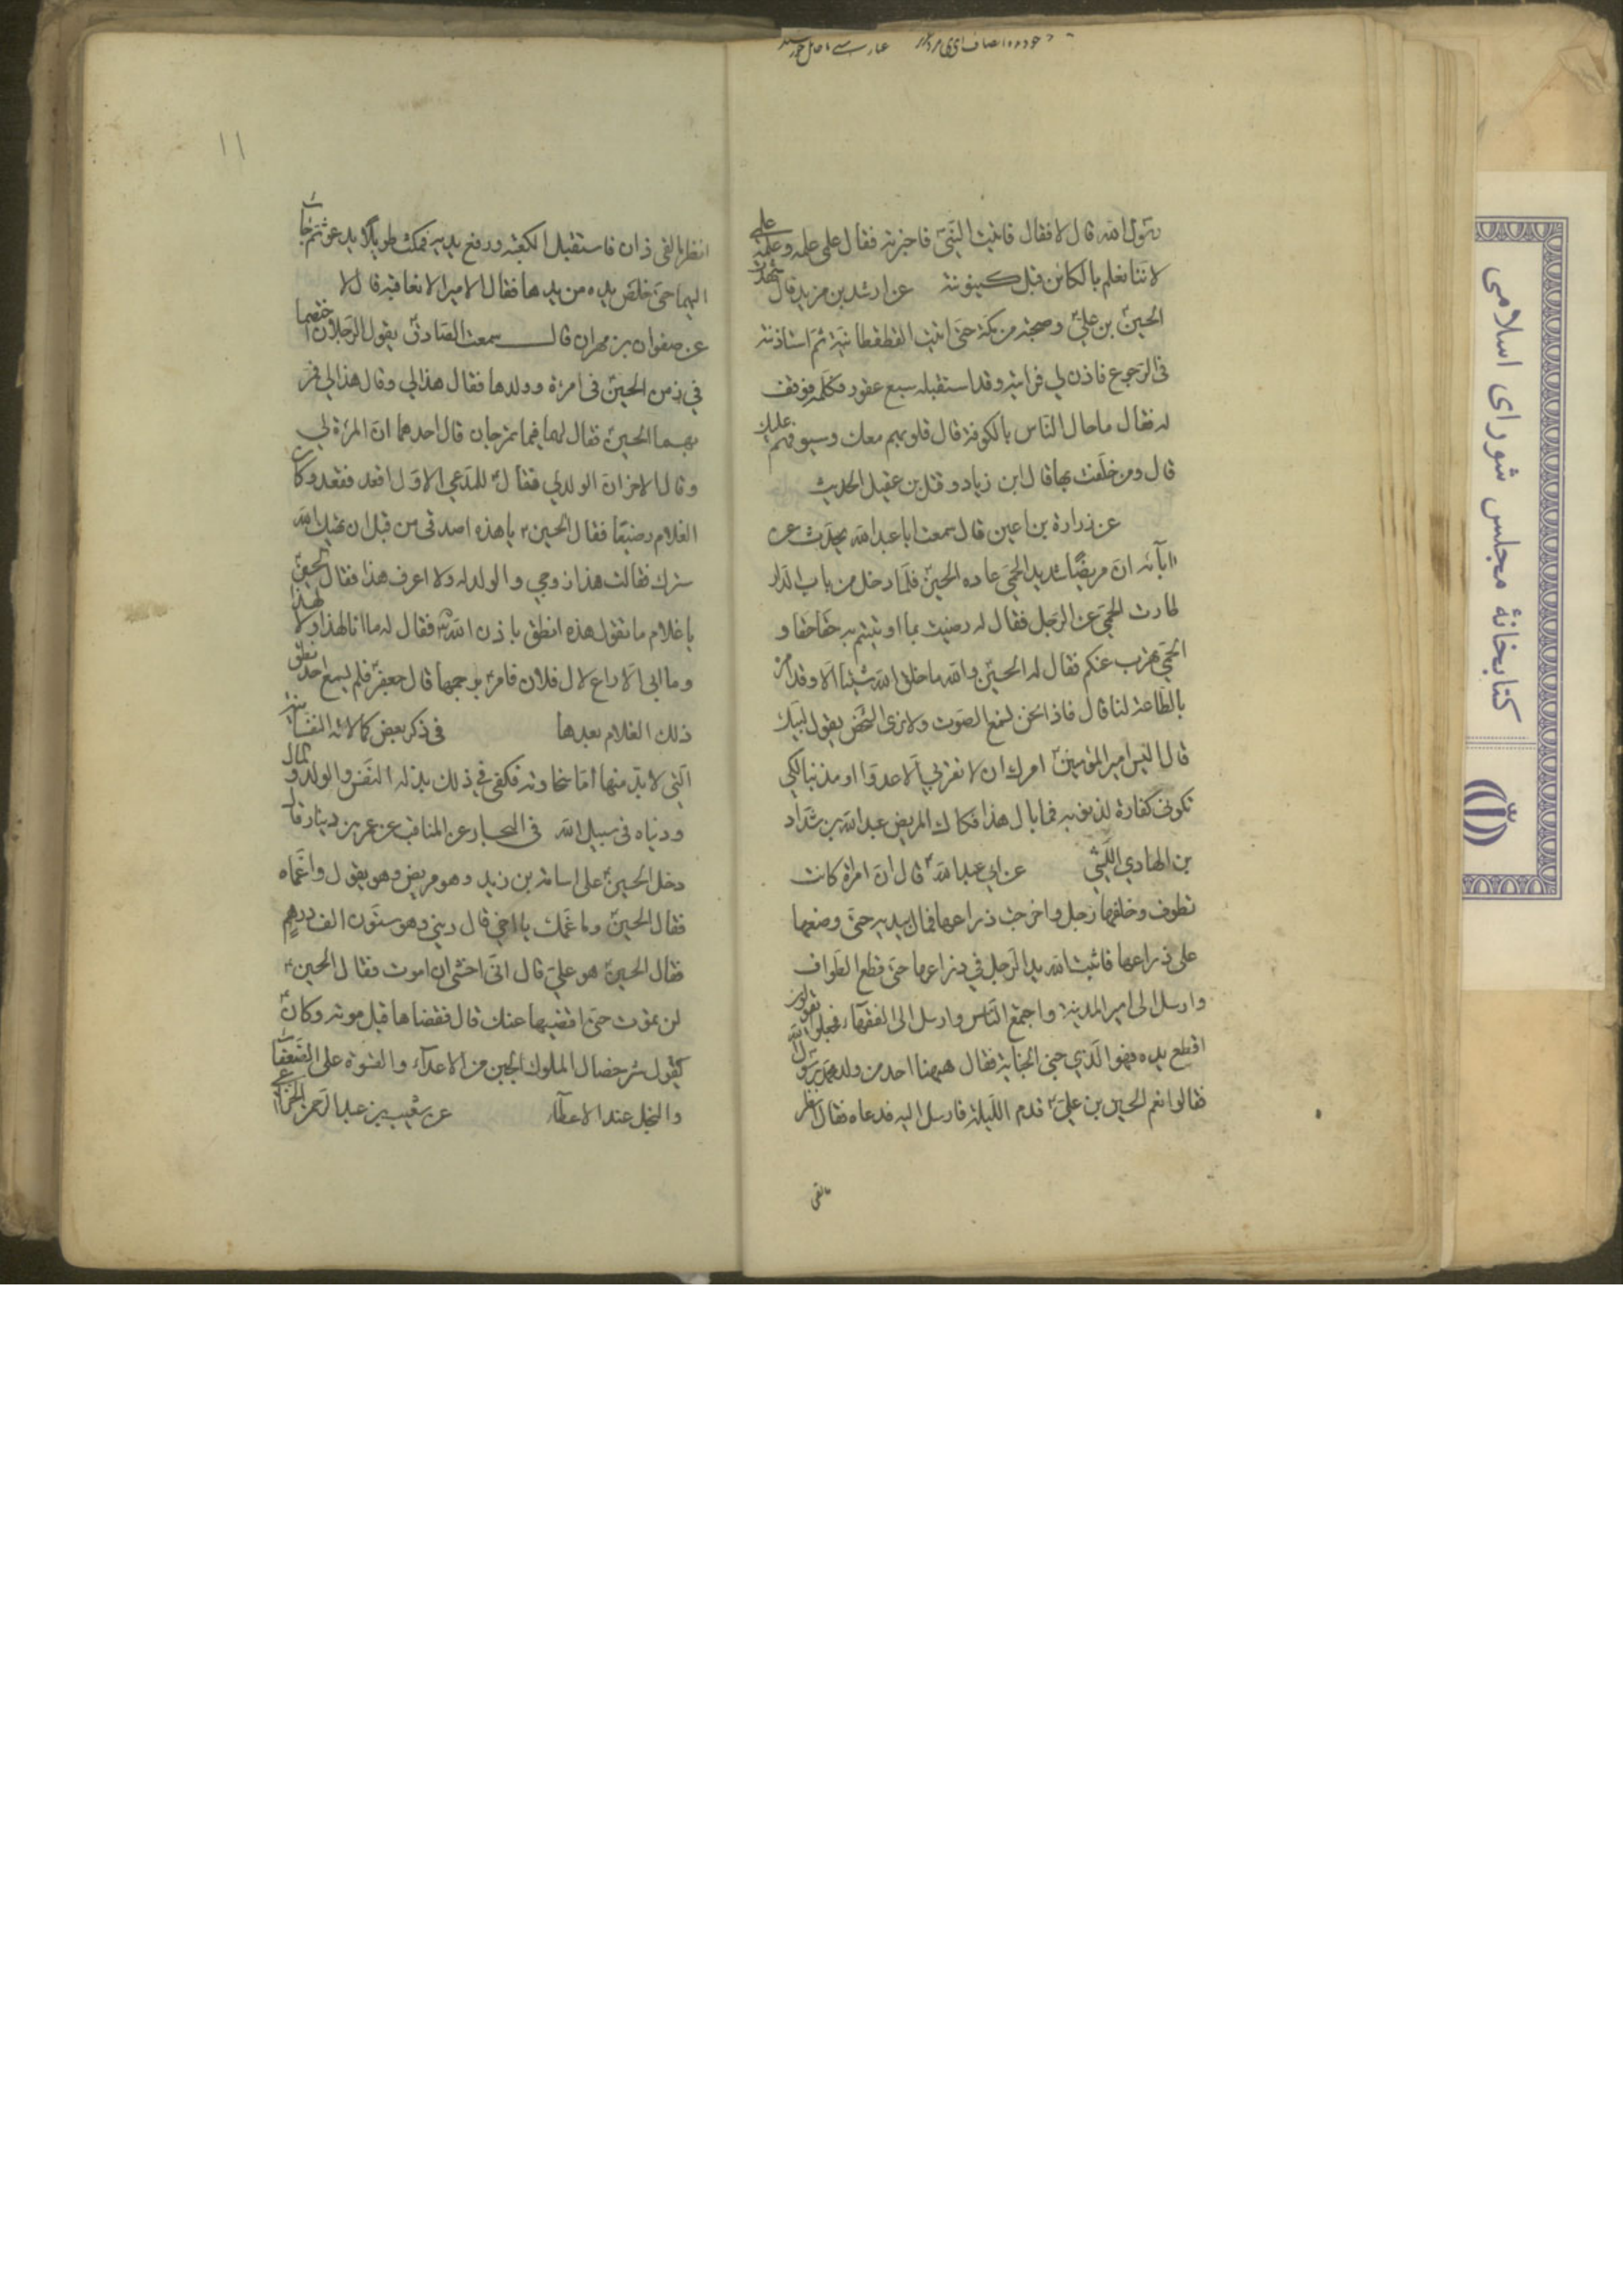 رسول الله قال لا فقال فاتيت النبيّ فاخبرته فقال علمي علمه وعلمه علمي
لاننا نعلم بالكائن قبل كينونته عن راشد بن مزيد قال شهدت
الحسين بن عليّ وصحبته من مكة حتى اتيت القطقطانية ثم استاذنته
في الرجوع فاذن لي فرايته وقد استقبله سبع عقور فكلمه فوقف
له فقال ما حال الناس بالكوفة قال قلوبهم معك وسيوفهم عليك
قال ومن خلفت بها قال ابن زياد وقتل بن عقيل الحديث
عن زرارة بن اعين قال سمعت ابا عبد الله يحدث عن
آبائه ان مريضًا شديد الحمى عاده الحسين فلما دخل من باب الدار
طارت الحمى عن الرجل فقال له رضيت بما اوتيتم به حقا حقا و
الحمى تهرب عنكم فقال له الحسين والله ما خلق الله شيئا الا وقد امره
بالطاعة لنا قال فاذا نحن نسمع الصوت ولا نرى الشخص يقول لبيك
قال اليس امير المؤمنين امرك ان لا تقربي الا عدوا او مذنبا لكي
تكوني كفارة لذنوبه فما بال هذا فكان المريض عبد الله بن شداد
بن الهادي الليثي عن ابي عبد الله قال ان امراة كانت
تطوف وخلفها رجل واخرجت ذراعها فمال بيده حتى وضعها
على ذراعها فاثبت الله يد الرجل في ذراعها حتى قطع الطواف
وارسل الى امير المدينة واجتمع الناس وارسل الى الفقهاء فجعلوا يقولون
اقطع يده فهو الذي جنى الجناية فقال ههنا احد من ولد محمد رسول الله
فقالوا نعم الحسين بن علي قدم الليلة فارسل اليه فدعاه فقال انظر
مالقي
١١
انظر ما لقي ذان فاستقبل الكعبة ورفع يديه فمكث طويلا يدعو ثم جاء
اليهما حتى خلص يده من يدها فقال الامير الا نعاقبه قال لا
عن صفوان بن مهران قال سمعت الصادق يقول الرجلان اختصما
في زمن الحسين في امراة وولدها فقال هذا لي وقال هذا لي فمر
بهما الحسين فقال لهما فيما تمرجان قال احدهما ان المراة لي
وقال الاخر ان الولد لي فقال للمدعي الاول اقعد فقعد وكان
الغلام رضيعا فقال الحسين يا هذه اصدقي من قبل ان يهتك الله
سترك فقالت هذا زوجي والولد له ولا اعرف هذا فقال الحسين
يا غلام ما تقول هذه انطق باذن الله فقال له ما انا لهذا ولا لهذا
وما ابي الا راع لال فلان فامر برجمها قال جعفر فلم يسمع احد نطق
ذلك الغلام بعدها في ذكر بعض كمالاته النفسانية
التي لا بد منها اما سخاوته فكفى في ذلك بذله النفس والولد و المال
ودنياه في سبيل الله في البحار عن المناقب عن عمر بن دينار قال
دخل الحسين على اسامة بن زيد وهو مريض وهو يقول واغماه
فقال الحسين وما غمك يا اخي قال ديني وهو ستون الف درهم
فقال الحسين هو علي قال اني اخشى ان اموت فقال الحسين
لن تموت حتى اقضيها عنك قال فقضاها قبل موته وكان
يقول شر خصال الملوك الجبن من الاعداء والقسوة على الضعفاء
والبخل عند الاعطاء عن شعيب بن عبد الرحمن الخزاعي
كتابخانهٔ مجلس شورای اسلامی